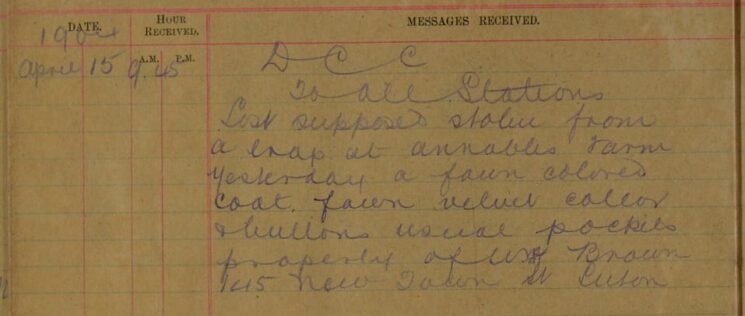 DATE. HOUR RECEIVED. MESSAGES RECEIVED.
1904 A.M. P.M.
April 15 9.45 D C C
To all Stations
Lost supposed stolen from
a trap at annables Farm
yesterday a fawn colored
coat. fawn velvet collor
& buttons usual pockets
property of Wm Brown
145 New Town St Luton